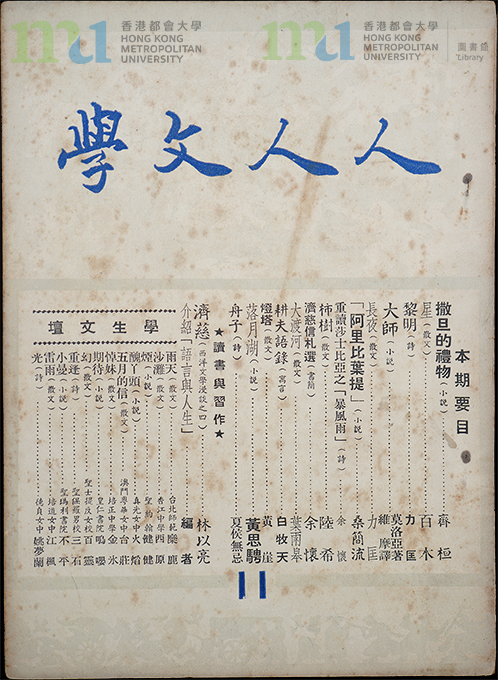 香港都會大學
HONG KONG
METROPOLITAN
UNIVERSITY
香港都會大學
HONG KONG
METROPOLITAN
UNIVERSITY
圖書館
Library
人人文學
本期要目
撒旦的禮物(小說) 齊桓
星(散文) 百木
黎明(詩) 力匡
大師(小說) 莫洛亞著 維摩譯
長夜(散文) 力匡
「阿里比葉提」(小說) 桑簡流
重讀莎士比亞之「暴風雨」(詩) 余懷
柿樹(散文) 陸希
濟慈信札選(書簡) 余懷
大渡河(散文) 葉雨皋
耕夫語錄(寓言) 白牧天
燈塔(散文) 黃崖
落月湖(小說) 黃思騁
舟子(詩) 夏侯無忌
★讀書與習作★
濟慈(西洋文學漫談之四) 林以亮
介紹「語言與人生」 編者
學生文壇
雨天(散文) 台北師範 鹿
沙灘(散文) 香江中學 西原
煙(小說) 聖約翰 健健
醜丫頭(小說) 真光女中 火焰
五月的信(散文) 澳門粵華女中 台莊
悼妹(散文) 培正中學 金冰
期待(小說) 皇仁書院 鳴嚶
幻(散文) 聖士提反女校 百靈
重逢(詩) 聖保羅男校 三石
小曼(小說) 聖瑪利書院 不平
雷雨(散文) 培道女中 江楓
光(詩) 德貞女中 姚夢蘭
11